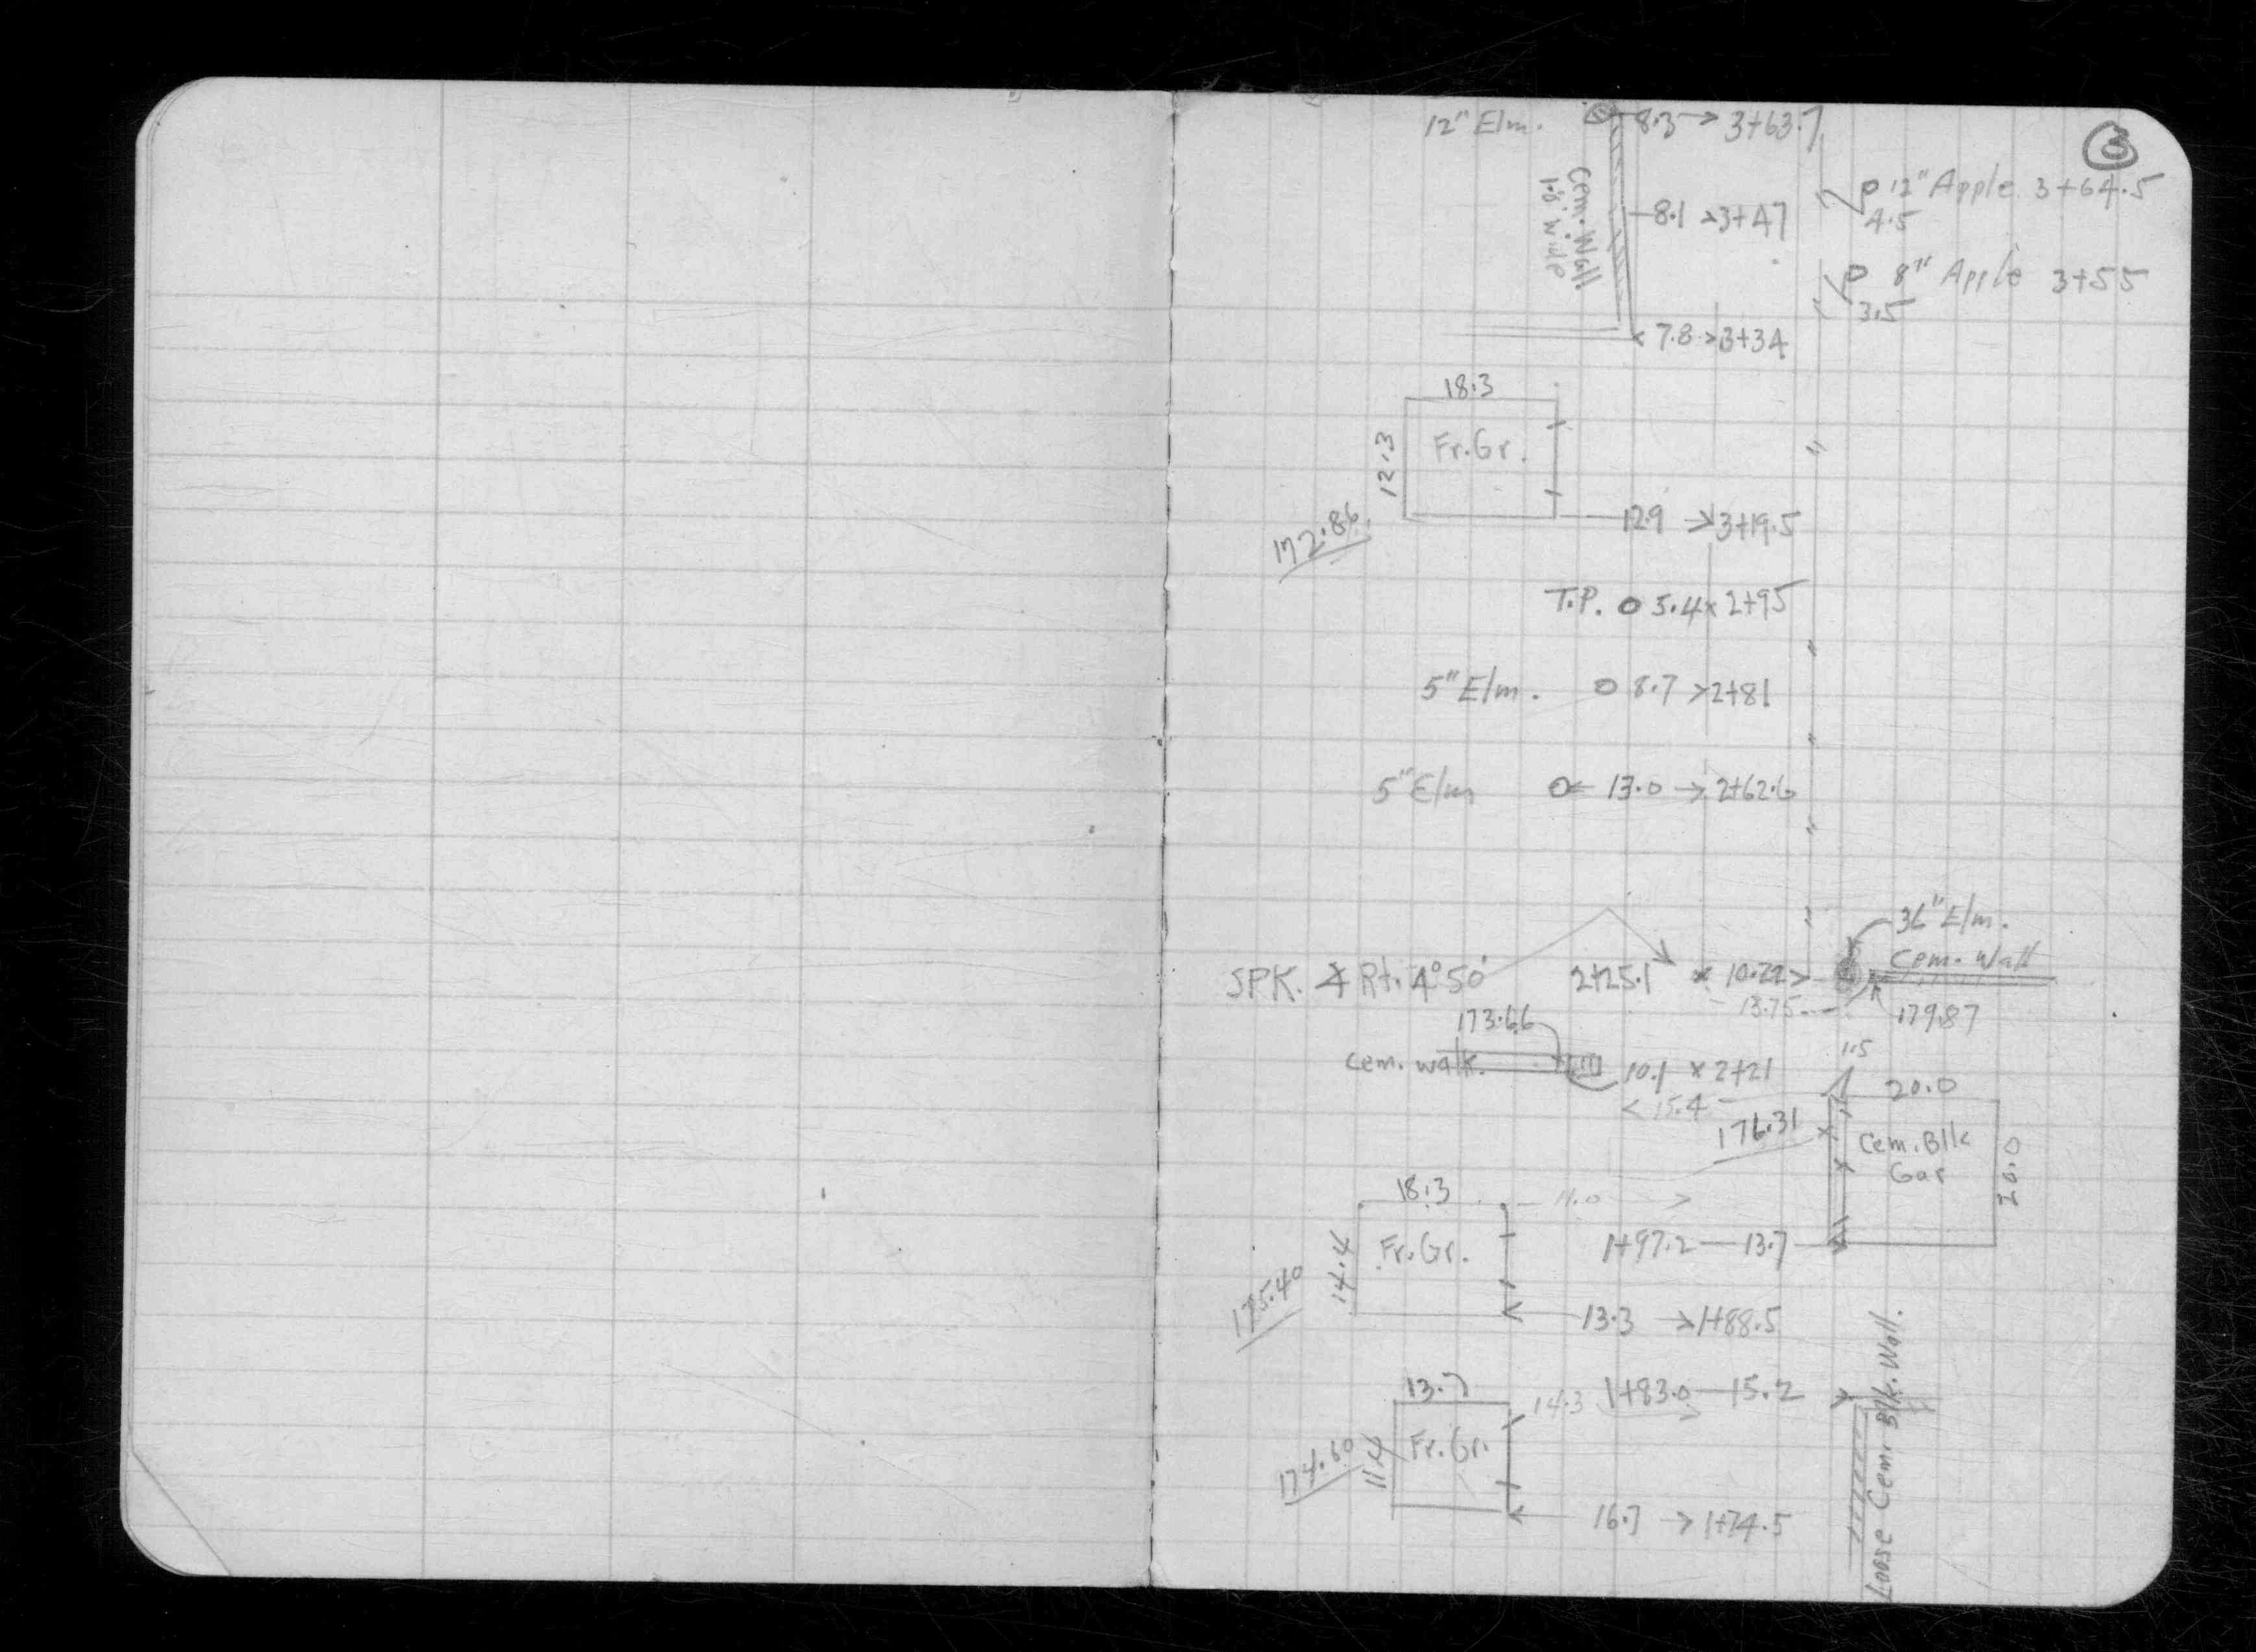 3
12" Elm. 8.3 → 3+63.7
12" Apple 3+64.5
4.5
Cem. Wall
1.8' wide
8.1 3+47
8" Apple 3+55
3.5
7.8 3+34
18.3
12.3
Fr. Gr.
172.86
12.9 → 3+19.5
T.P. o 5.4 x 2+95
5" Elm. o 8.7 > 2+81
5" Elm 13.0 → 2+62.6
36" Elm.
Cem. Wall
SPK. ∡ Rt. 4°50' 2+25.1 x 10.22 >
13.75
179.87
173.66
Cem. walk. 10.1 x 2+21
1.5
< 15.4
20.0
176.31
Cem. Blk
Gar
20.0
18.3
11.0
14.4
Fr. Gr.
1+97.2 — 13.7
175.40
13.3 → 1+88.5
13.7
14.3
1+83.0 — 15.2
174.60
11.4
Fr. Gr.
16.7 → 1+74.5
Loose Cem. Blk. Wall.